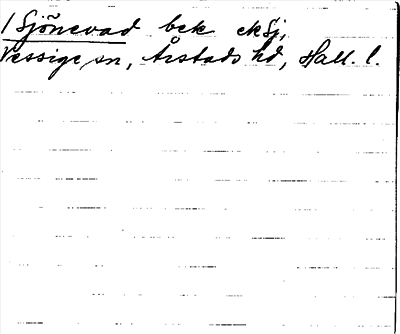 1 Sjönevad bek ekSj,
Vessige sn, Årstads hd, Hall. l.